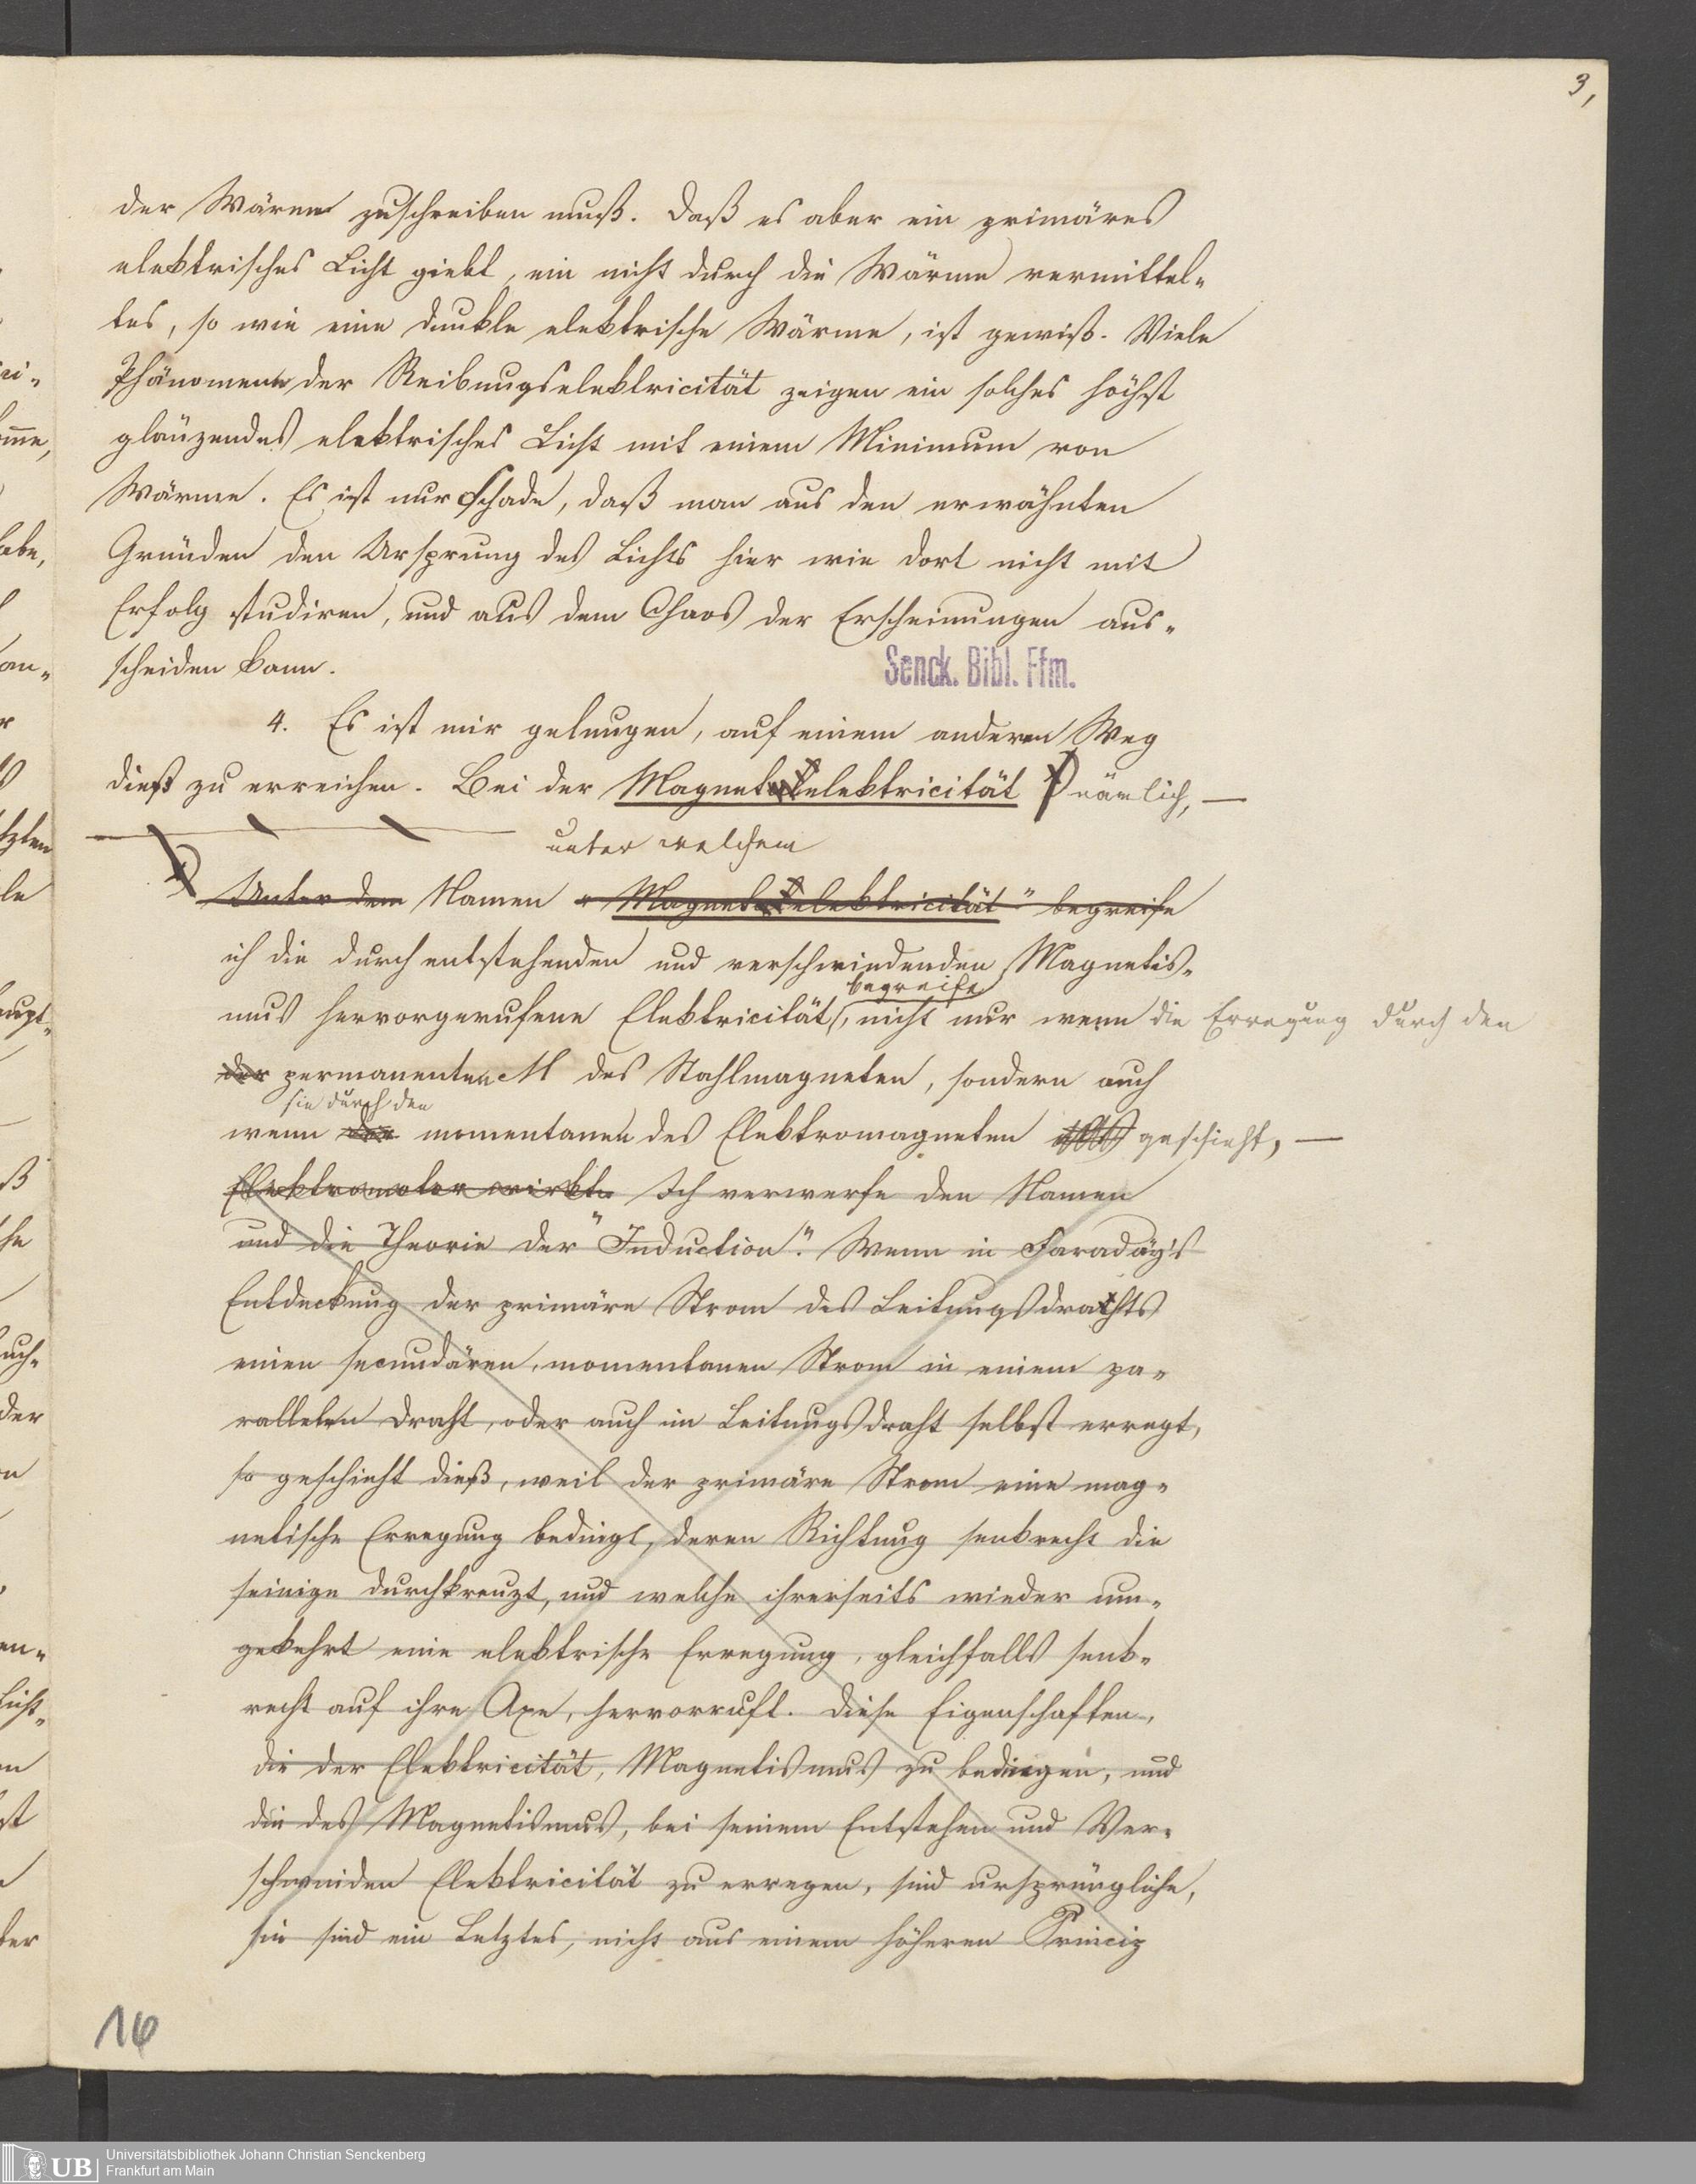 3,
der Wärme zuschreiben muß. Daß es aber ein primäres
elektrisches Licht giebt, ein nicht durch die Wärme vermittel-
tes, so wie eine dunkle elektrische Wärme, ist gewiß. Viele
Phänomene der Reibungselektricität zeigen ein solches höchst
glänzendes elektrisches Licht mit einem Minimum von
Wärme. Es ist nur Schade, daß man aus den erwähnten
Gründen den Ursprung des Lichts hier wie dort nicht mit
Erfolg studiren, und aus dem Chaos der Erscheinungen aus-
scheiden kann.
Senck. Bibl. Ffm.
4. Es ist mir gelungen, auf einem anderen Weg
dieß zu erreichen. Bei der Magnetelektricität nämlich, —
unter welchem
Unter dem Namen "Magnetelektricität" begreife
ich die durch entstehenden und verschwindenden Magnetis-
begreife
mus hervorgerufene Elektricität, nicht nur wenn die Erregung durch den
der permanenten M des Stahlmagneten, sondern auch
sie durch den
wenn der momentanen des Elektromagneten geschieht, —
Elektromotor wirkt. Ich verwerfe den Namen
und die Theorie der "Induction". Wenn in Faraday's
Entdeckung der primäre Strom des Leitungsdrahts
einen secundären, momentanen Strom in einem pa-
rallelen Draht, oder auch im Leitungsdraht selbst erregt,
so geschieht dieß, weil der primäre Strom eine mag-
netische Erregung bedingt, deren Richtung senkrecht die
seinige durchkreuzt, und welche ihrerseits wieder um-
gekehrt eine elektrische Erregung, gleichfalls senk-
recht auf ihre Axe, hervorruft. Diese Eigenschaften,
die der Elektricität, Magnetismus zu bedingen, und
die des Magnetismus, bei seinem Entstehen und Ver-
schwinden Elektricität zu erregen, sind ursprüngliche,
sie sind ein Letztes, nicht aus einem höheren Princip
16
UB
Universitätsbibliothek Johann Christian Senckenberg
Frankfurt am Main